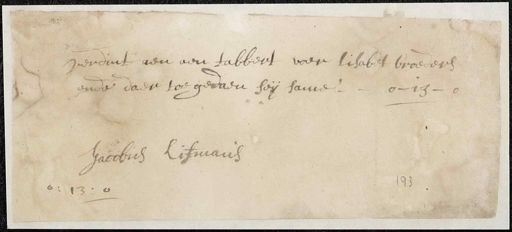 verdint aen een tabbert voer lisabet broeders
ende daer toe gedaen sey same - - 0-13-0
Jacobus Lifmans
0:13:0
193